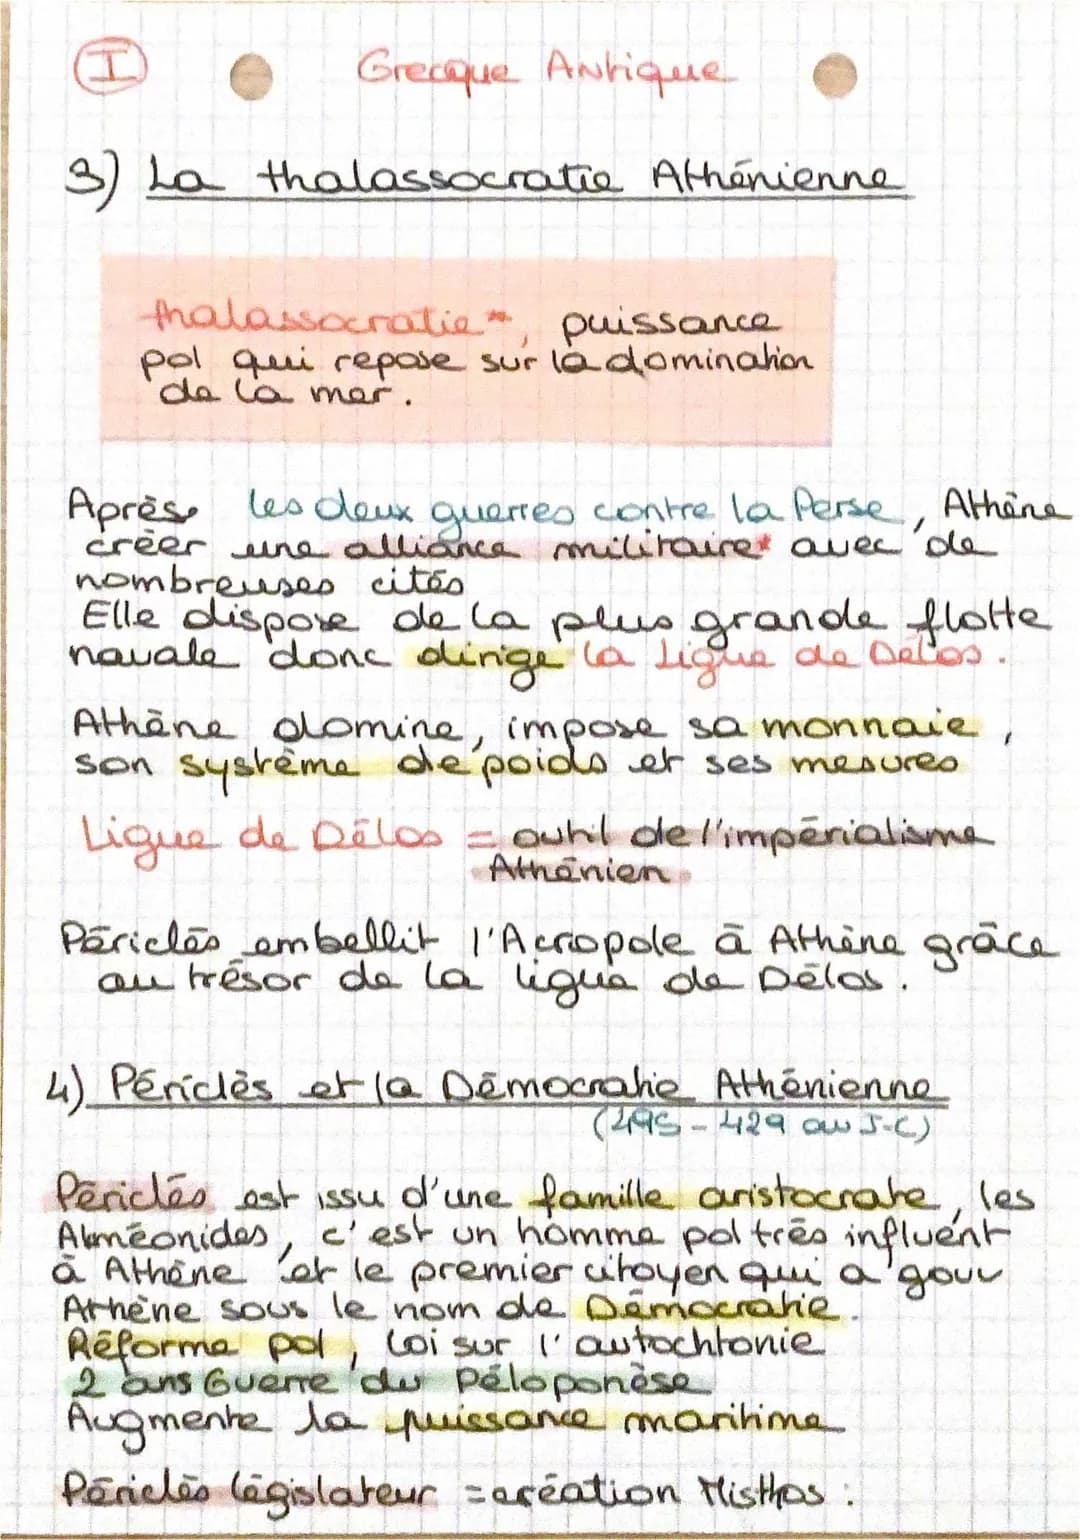 I
Grecque Antique
3) La thalassocratie Athénienne
thalassocratie*, puissance
pol qui repose sur la domination
de la mer.
Après les deux guerres contre la Perse, Athène
créer une alliance militaire* avec de
nombreuses cités
Elle dispose de la plus grande flotte
navale donc dirige la Ligue de Délos.
Athène domine, impose sa monnaie,
son système de poids et ses mesures
Ligue de Délos = outil de l'impérialisme
Athénien.
Périclès embellit l'Acropole à Athène grâce
au trésor de la ligue de Délos.
4) Périclès et la Démocratie Athénienne
(495 - 429 av J-C)
Périclès est issu d'une famille aristocrate, les
Alméonides, c'est un homme pol très influent
à Athène et le premier citoyen qui a gouv
Athène sous le nom de Démocratie.
Réforme pol, loi sur l'autochtonie
2 ans Guerre du Péloponèse
Augmente la puissance maritime
Périclès législateur = création Misthos :